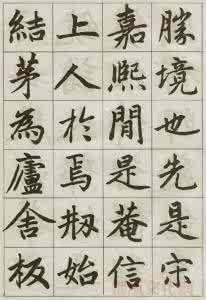 勝境也先是宋
嘉熙間是菴信
上人於焉剏始
結茅為廬舍板